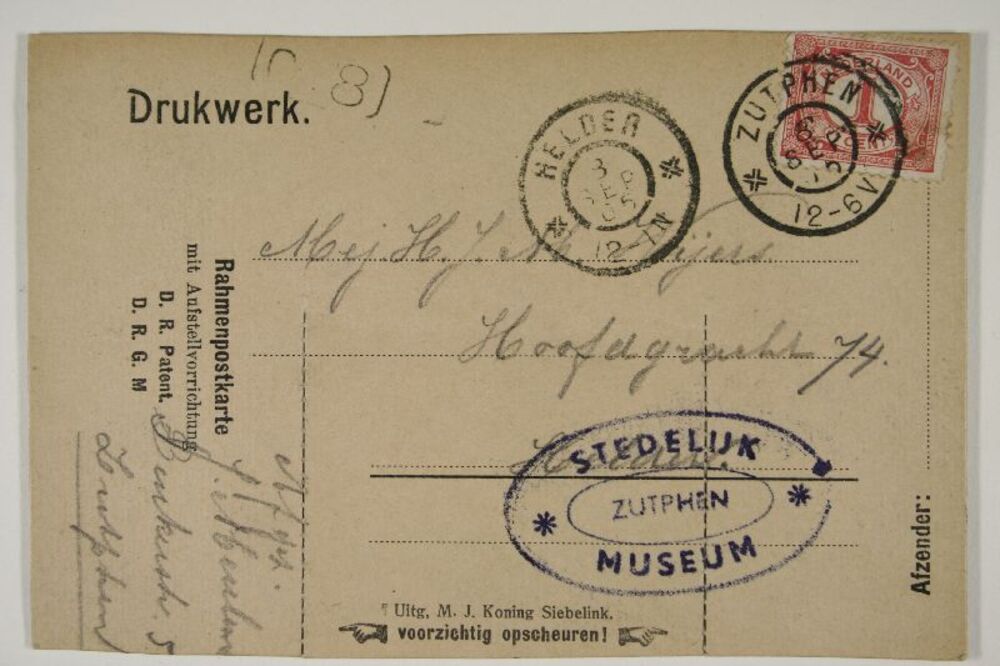 8)
Drukwerk.
HELDER
3
SEP
05
12-1N
NEDERLAND
1
CENT
ZUTPHEN
SEP
12-6V
Mej. H. J.
Hoofdgracht 74.
Rahmenpostkarte
mit Aufstellvorrichtung
D. R. Patent.
D. R. G. M
Afz.
5
Zutphen
STEDELIJK
ZUTPHEN
MUSEUM
Afzender:
Uitg, M. J. Koning Siebelink.
voorzichtig opscheuren!